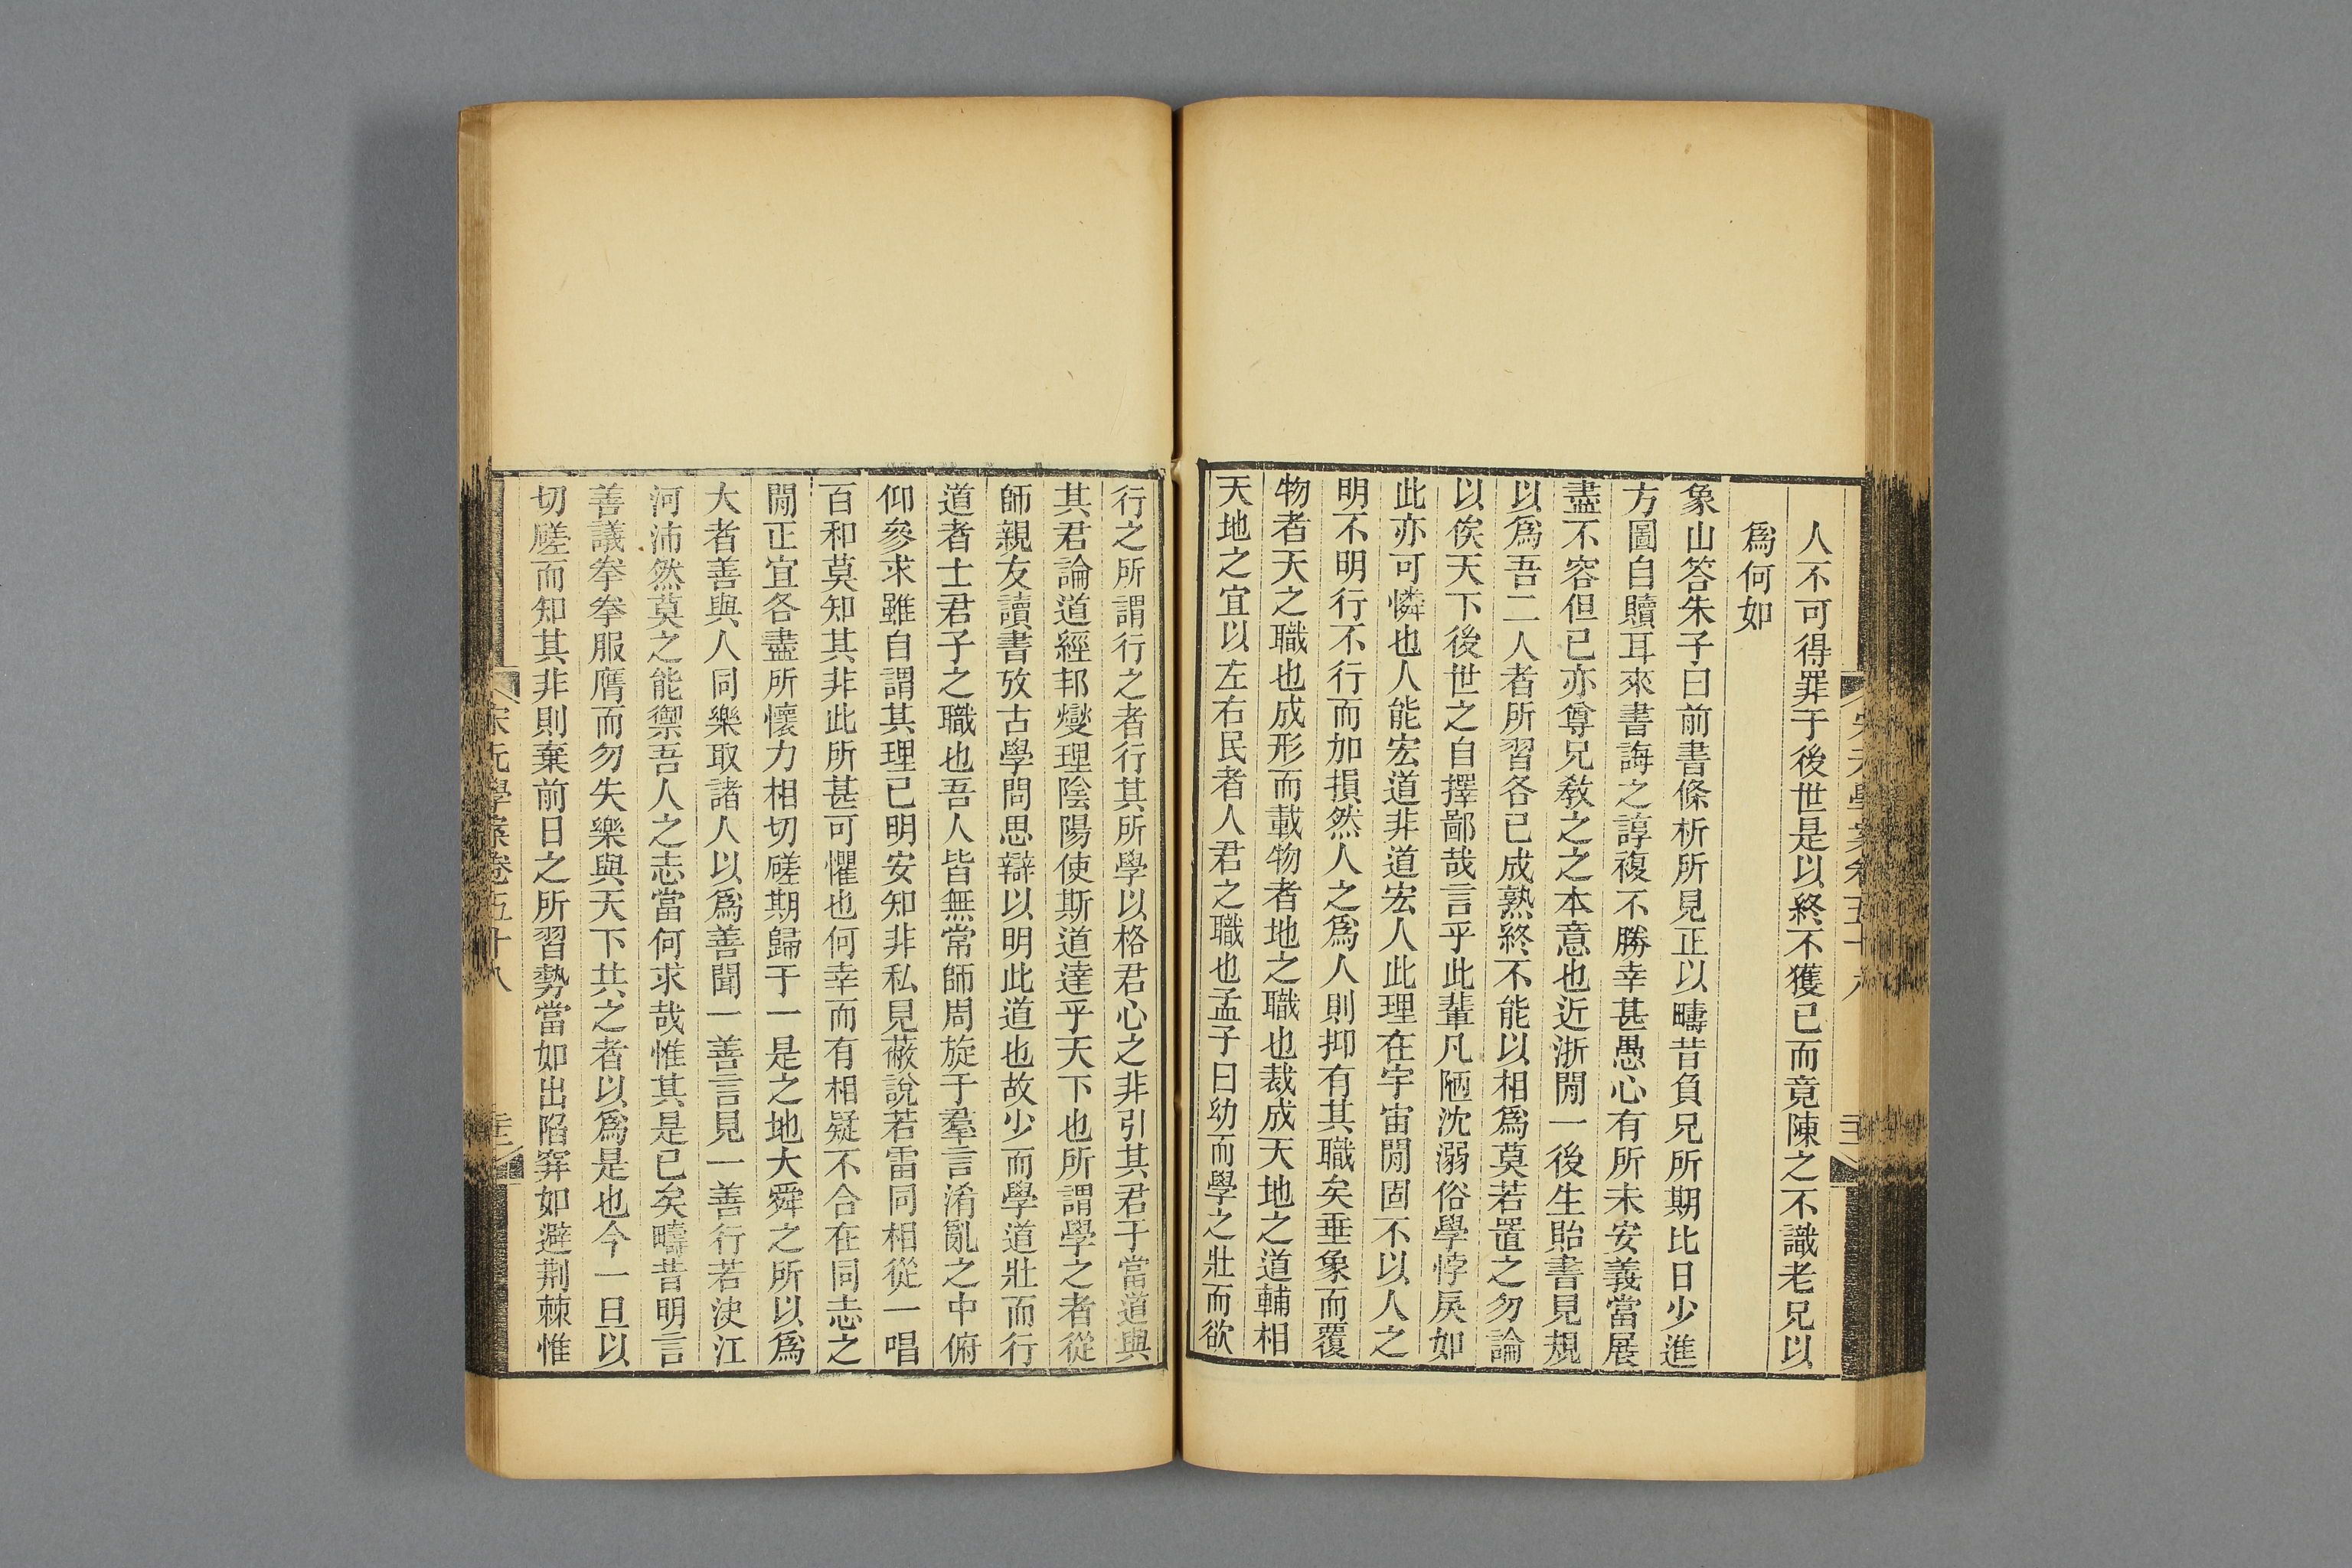 人不可得罪于後世是以終不獲已而竟陳之不識老兄以
爲何如
象山答朱子曰前書條析所見正以疇昔負兄所期比日少進
方圖自贖耳來書誨之諄複不勝幸甚愚心有所未安義當展
盡不容但已亦尊兄敎之之本意也近浙閒一後生貽書見規
以爲吾二人者所習各已成熟終不能以相爲莫若置之勿論
以俟天下後世之自擇鄙哉言乎此輩凡陋沈溺俗學悖戾如
此亦可憐也人能宏道非道宏人此理在宇宙閒固不以人之
明不明行不行而加損然人之爲人則抑有其職矣垂象而覆
物者天之職也成形而載物者地之職也裁成天地之道輔相
天地之宜以左右民者人君之職也孟子曰幼而學之壯而欲
行之所謂行之者行其所學以格君心之非引其君于當道與
其君論道經邦燮理陰陽使斯道達乎天下也所謂學之者從
師親友讀書攷古學問思辯以明此道也故少而學道壯而行
道者士君子之職也吾人皆無常師周旋于羣言淆亂之中俯
仰參求雖自謂其理已明安知非私見蔽說若雷同相從一唱
百和莫知其非此所甚可懼也何幸而有相疑不合在同志之
閒正宜各盡所懷力相切磋期歸于一是之地大舜之所以爲
大者善與人同樂取諸人以爲善聞一善言見一善行若決江
河沛然莫之能禦吾人之志當何求哉惟其是已矣疇昔明言
善議拳拳服膺而勿失樂與天下共之者以爲是也今一旦以
切磋而知其非則棄前日之所習勢當如出陷穽如避荆棘惟
宋元學案卷五十八